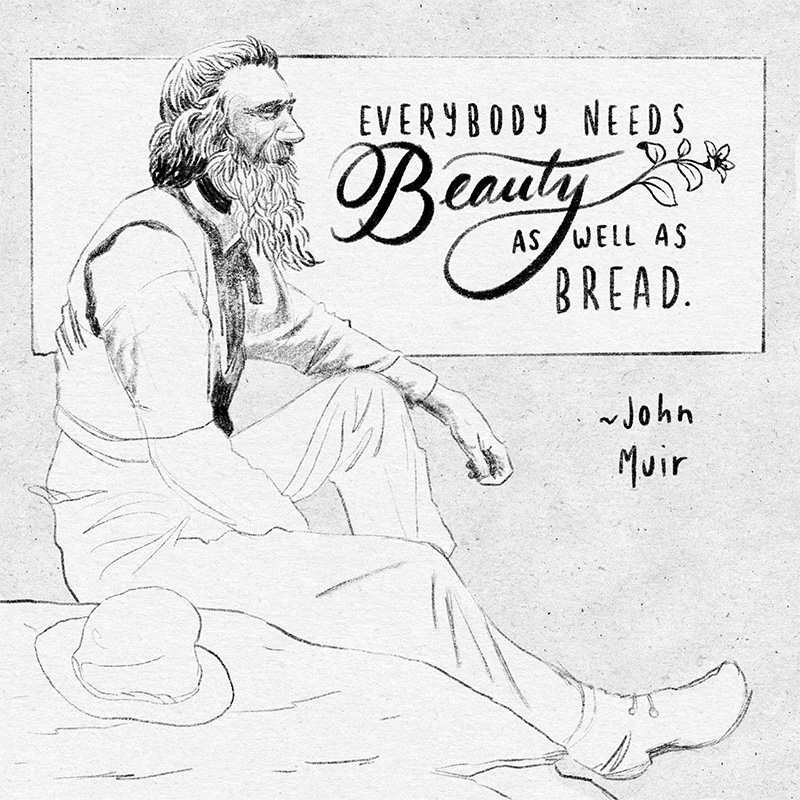 EVERYBODY NEEDS
Beauty
AS WELL AS
BREAD.
~John
Muir